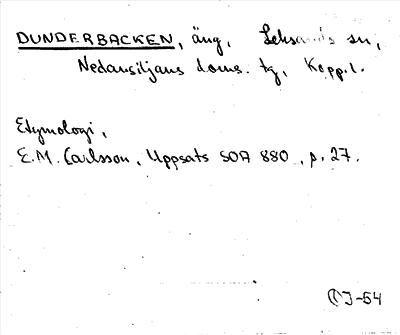 DUNDERBACKEN, äng, Leksands sn,
Nedansiljans doms. tg, Kopp.l.
Etymologi,
E.M. Carlsson, Uppsats SOA 880, p. 27.
J-54